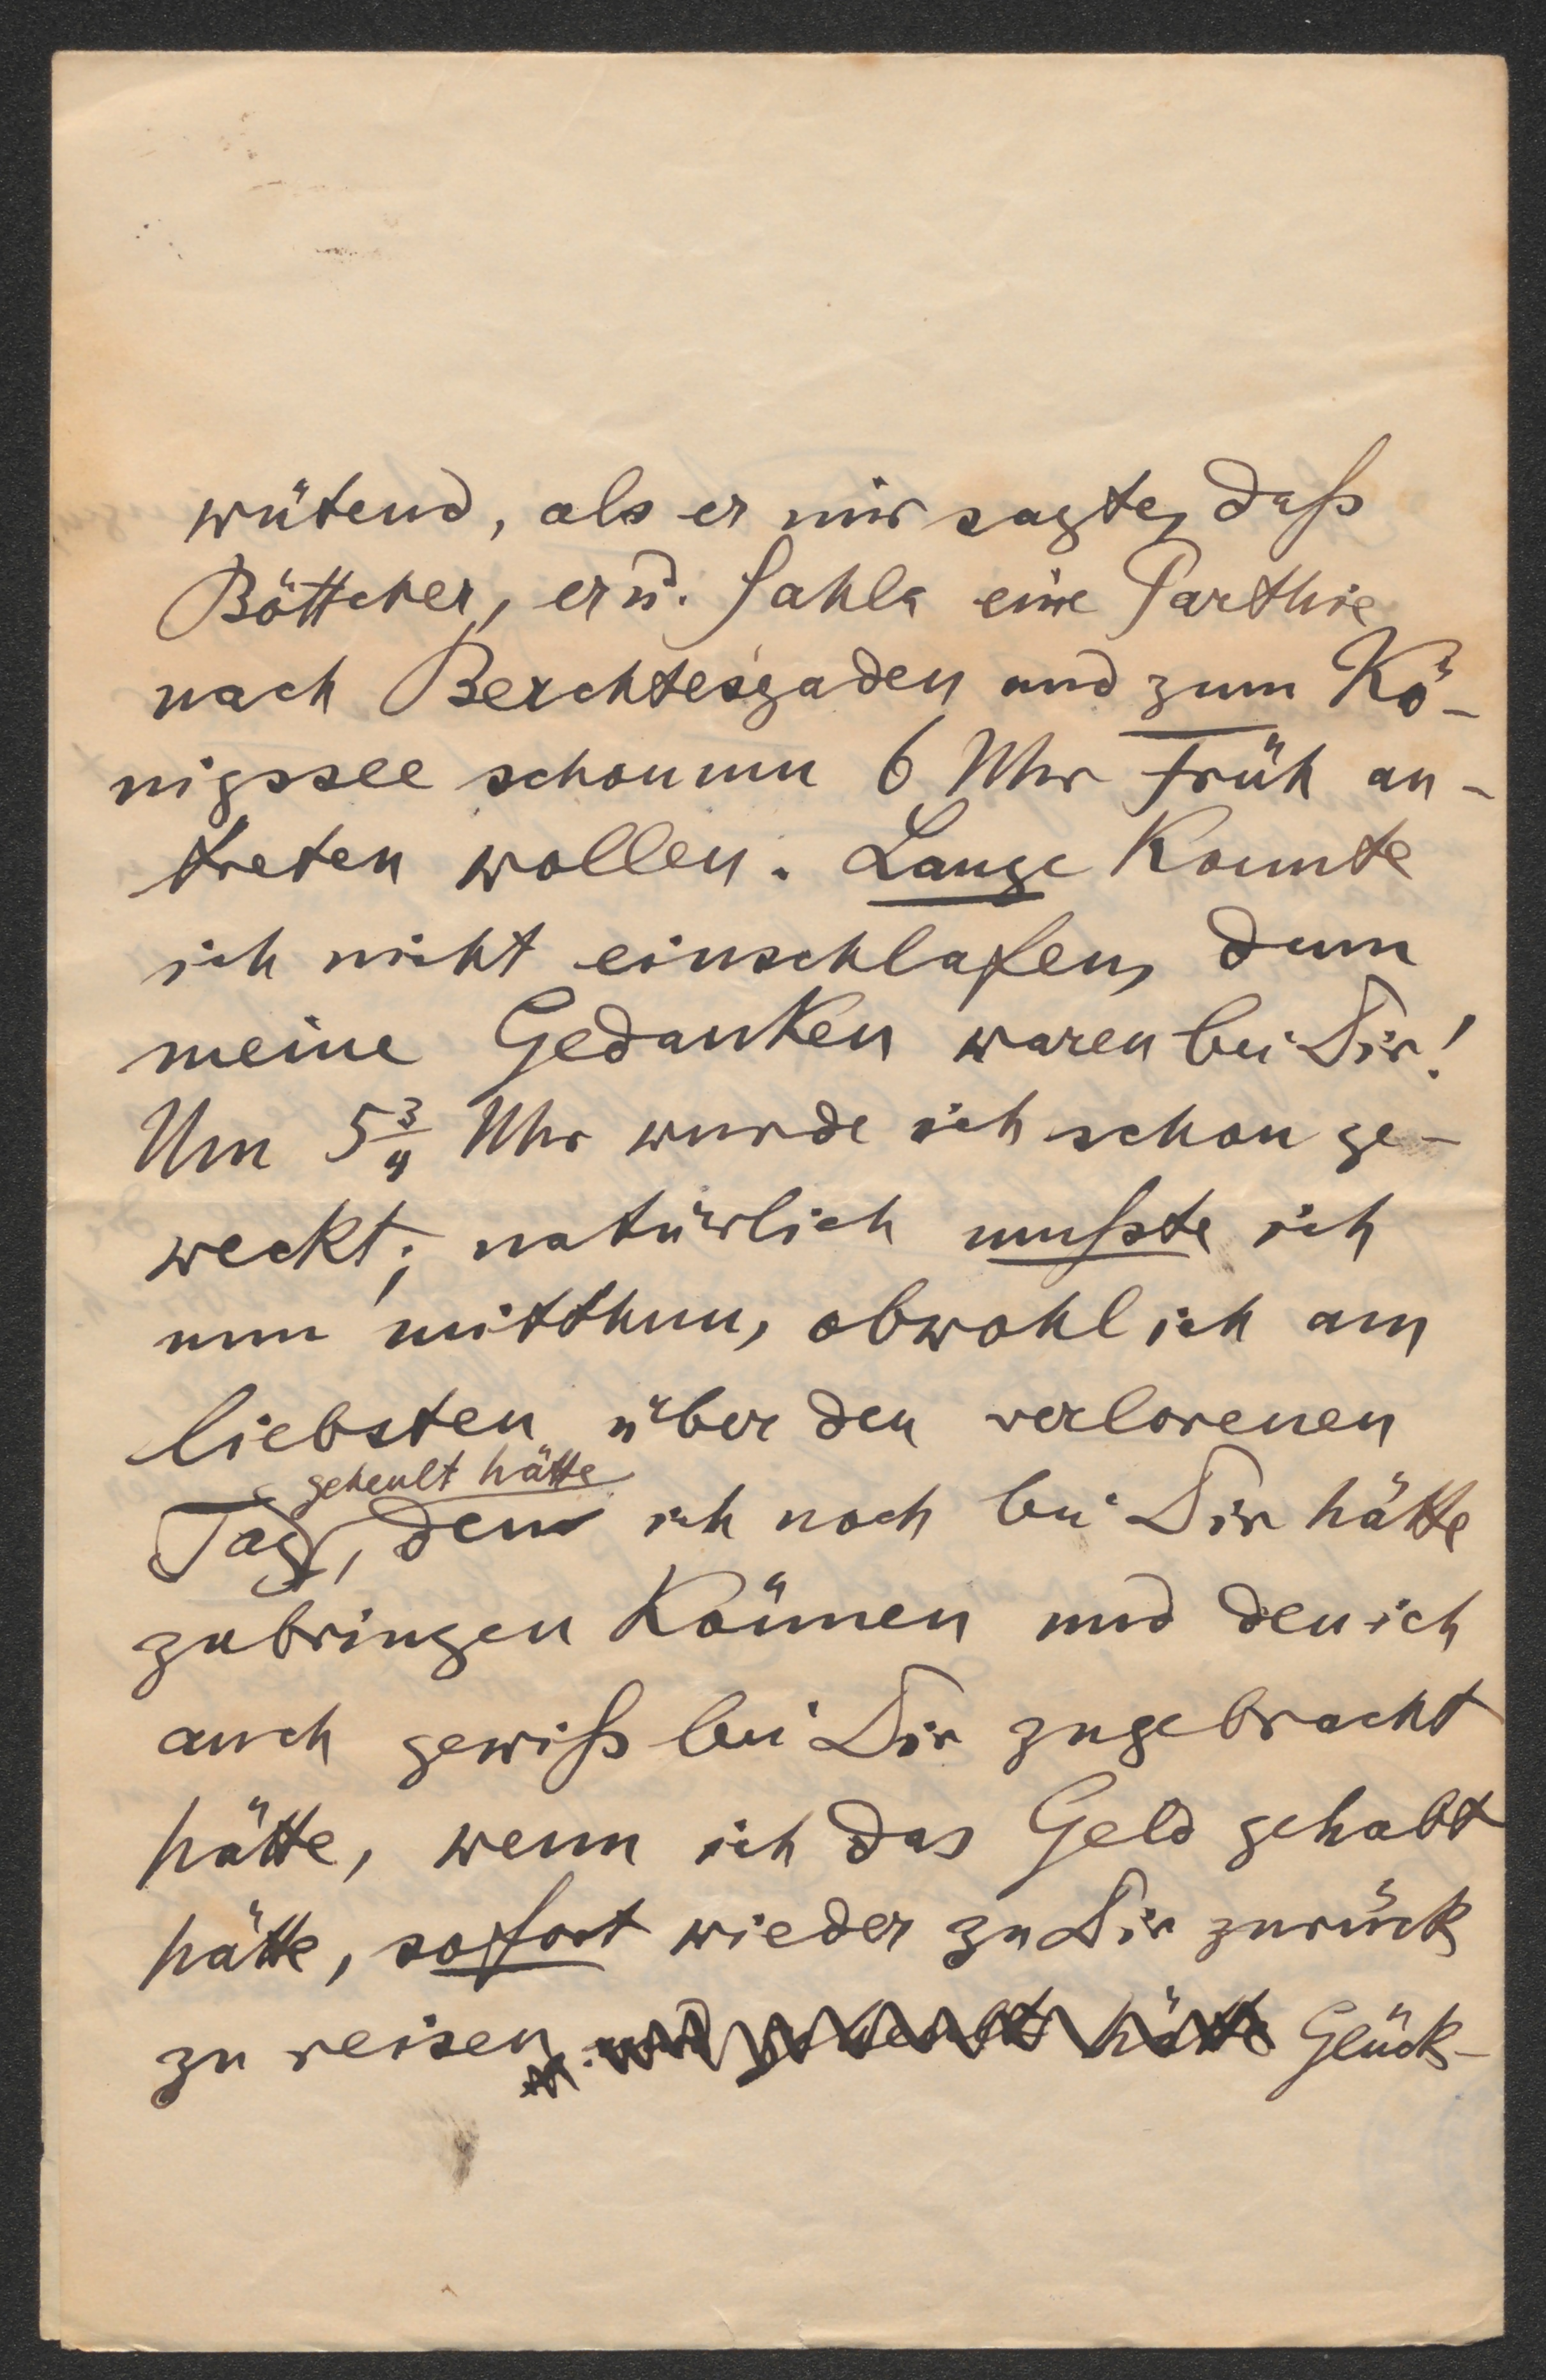 wütend, als er mir sagte, daß
Böttcher, er u. Sahla eine Parthie
nach Berchtesgaden und zum Kö-
nigssee schon um 6 Uhr früh an-
treten wollen. Lange konnte
ich nicht einschlafen, denn
meine Gedanken waren bei Dir!
Um 5 3/4 Uhr wurde ich schon ge-
weckt; natürlich mußste ich
nun mitthun, obwohl ich am
liebsten über den verlorenen
geheult hätte
Tag, den ich noch bei Dir hätte
zubringen können und den ich
auch gewiß bei Dir zugebracht
hätte, wenn ich das Geld gehabt
hätte, sofort wieder zu Dir zurück
zu reisen. und geheult hätte Glück-